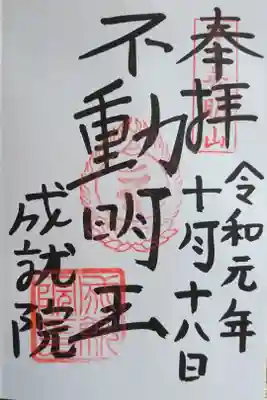 奉拝
令和元年
十月十八日
不動明王
成就院